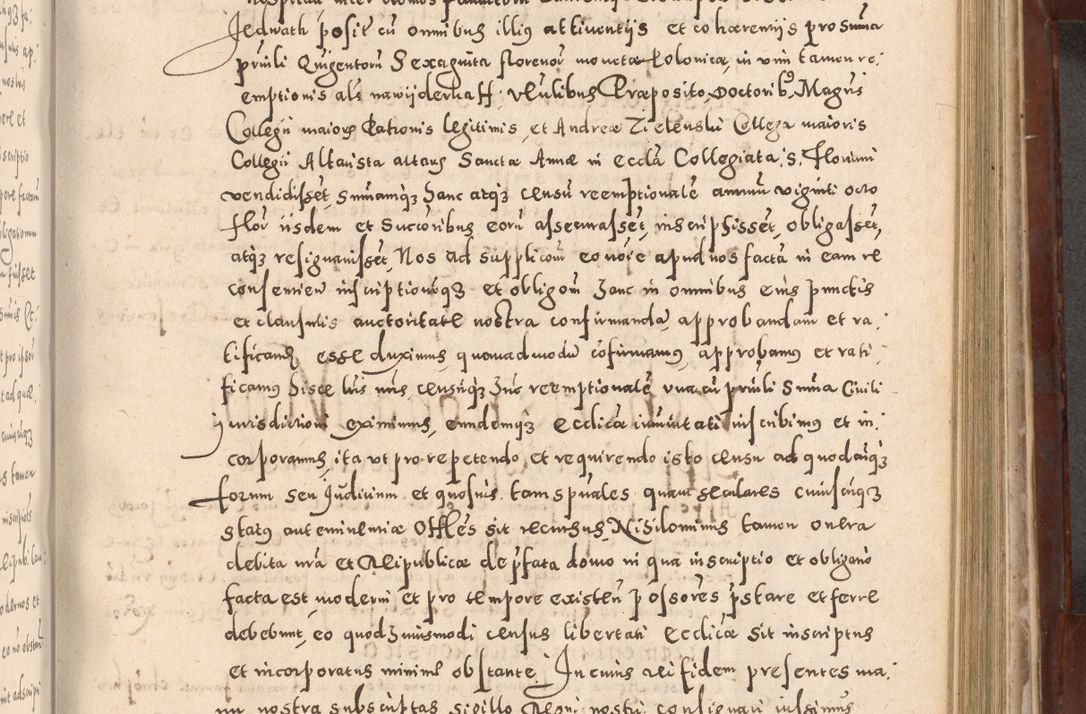 Jedwath posit cū omnibus illiꝫ attinentijs et cohærentijs pro summa
priuili Quigentorū Sexaginta florenoꝝ monetæ Polonicæ, in vim tamen re,
emptionis als nawijderkaff: Vlulibus Præposito, Doctoribꝫ, Magris
Collegij maioris legitimis, et Andreæ Zielenski Collegæ maioris
Collegii Altarista altaris Sanctæ Annæ in eccla Collegiata, S. Floriani
vendidisset, summamqꝫ hanc atqꝫ censū reemptionalē annuū viginti octo
flor iisdem et Succoribus eorū assecurasset, inscripsisset, obligasset,
atqꝫ resignauisset, Nos ad supplicōm eo noīe apud nos factā in eam re
consenien inscriptionēqꝫ et obligōm hanc in omnibus eius punctis
et clausulis auctoritate nostra confirmandā, approbandam et ra,
tificandā esse duximus, quemadmodū cōfirmamus, approbamus et rati,
ficamus hisce lris nris, censūqꝫ hūc reemptionalē vna cū priuili Summa Ciuili
jurisdictioni eximimus, eundemqꝫ Ecclicæ immūitati inscribimus et in,
corporamus, ita vt pro repetendo, et requirendo isto censu ad quodcūqꝫ
forum seu Judicium et quosuis tam spūales quam seculares cuiuscūqꝫ
status aut eminentiæ Offles sit recursus, Nihilominus tamen onera
debita nrā et Reipublicæ de pfata domo in qua inscriptio et obligatō
facta est, moderni et pro tempore existen possores pstare et ferre
debebunt, eo quod huiusmodi census libertati Ecclicæ sit inscriptus
et incorporatus minime obstante. In cuius rei fidem presentes ma,
nu nostra subscriptas sigillo Regni nostri consignari iussimus